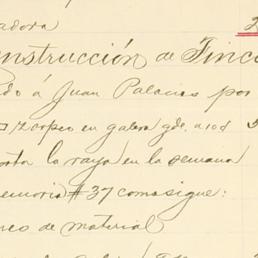 adora 2
nstrucción de Finca
do á Juan Palacios por
1200 pies en galera gde. a 10 d
orta la raya en la semana
emoria #37 como sigue:
res de material